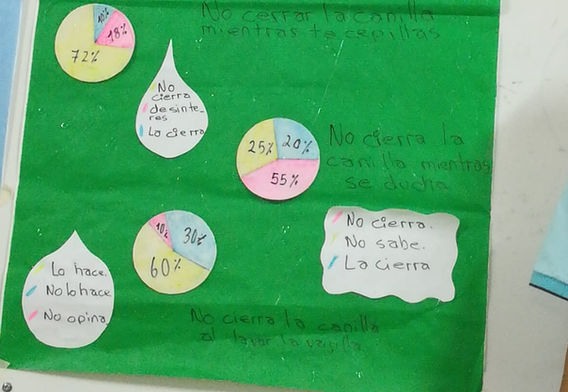 No cerrar la canilla
mientras te cepillas
10%
18%
72%
No
cierra
desinte-
res
La cierra
25%
20%
55%
No cierra la
canilla mientras
se ducha
No cierra.
No sabe.
La cierra
10%
30%
60%
Lo hace.
No lo hace
No opina
No cierra la canilla
al lavar la vajilla